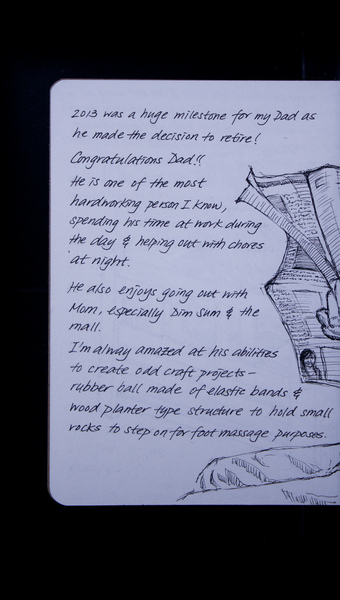 2013 was a huge milestone for my Dad as
he made the decision to retire!
Congratulations Dad!!
He is one of the most
hardworking person I know,
spending his time at work during
the day & helping out with chores
at night.
He also enjoys going out with
Mom, especially Dim Sum & the
mall.
I'm alway amazed at his abilities
to create odd craft projects-
rubber ball made of elastic bands &
wood planter type structure to hold small
rocks to step on for foot massage purposes.